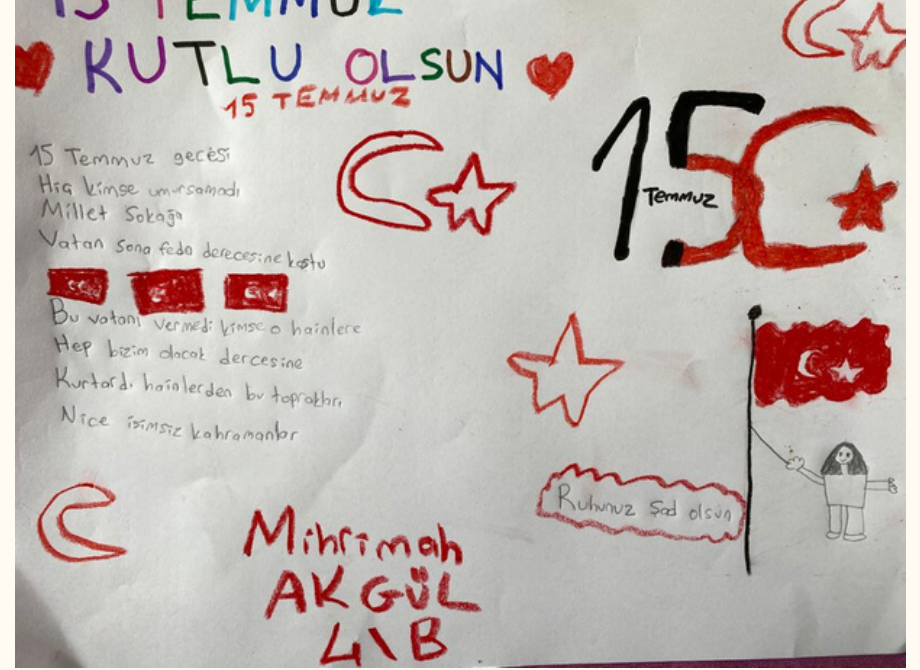 15 TEMMUZ
KUTLU OLSUN
15 TEMMUZ
15 Temmuz gecesi
Hiç kimse umursamadı
Millet Sokağa
Vatan sana feda derecesine koştu
Bu vatanı vermedi kimse o hainlere
Hep bizim olacak dercesine
Kurtardı hainlerden bu toprakları
Nice isimsiz kahramanlar
15
Temmuz
Ruhunuz Şad olsun
Mihrimah
AKGÜL
4\B